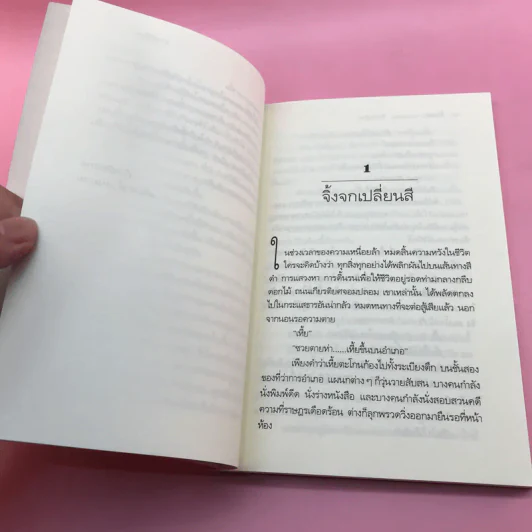 1
จิ้งจกเปลี่ยนสี
ในช่วงเวลาของความเหนื่อยล้า หมดสิ้นความหวังในชีวิต
ใครจะคิดบ้างว่า ทุกสิ่งทุกอย่างได้พลิกผันไปบนเส้นทางสี
ดำ การแสวงหา การดิ้นรนเพื่อให้ชีวิตอยู่รอดท่ามกลางกลีบ
ดอกไม้ ถนนเกียรติยศจอมปลอม เขาเหล่านั้น ได้พลัดตกลง
ไปในกระแสธารอันน่ากลัว หมดหนทางที่จะต่อสู้เสียแล้ว นอก
จากนอนรอความตาย
"เหี้ย"
"ช่วยตายห่า......เหี้ยขึ้นบนอำเภอ"
เพียงคำว่าเหี้ยตะโกนก้องไปทั้งระเบียงตึก บนชั้นสอง
ของที่ว่าการอำเภอ แผนกต่างๆ ก็วุ่นวายสับสน บางคนกำลัง
นั่งพิมพ์ดีด นั่งร่างหนังสือ และบางคนกำลังนั่งสอบสวนคดี
ความที่ราษฎรเดือดร้อน ต่างก็ลุกพรวดวิ่งออกมายืนรอที่หน้า
ห้อง